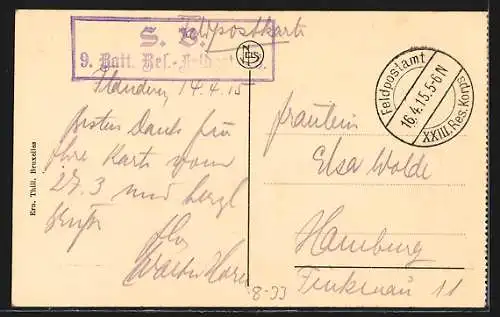 Feldpostkarte
S. B.
9. Batt. Res.-Feldart.
Flandern, 14.4.15
besten Dank für
Ihre Karte vom
27.3 und herzl
Grüße
Ihr
Walter
Ern. Thill, Bruxelles
NELS
Feldpostamt
16.4.15.5-6N
XXIII.Res.Korps
Fräulein
Elsa Wolde
Hamburg
Finkenau 11
8-33